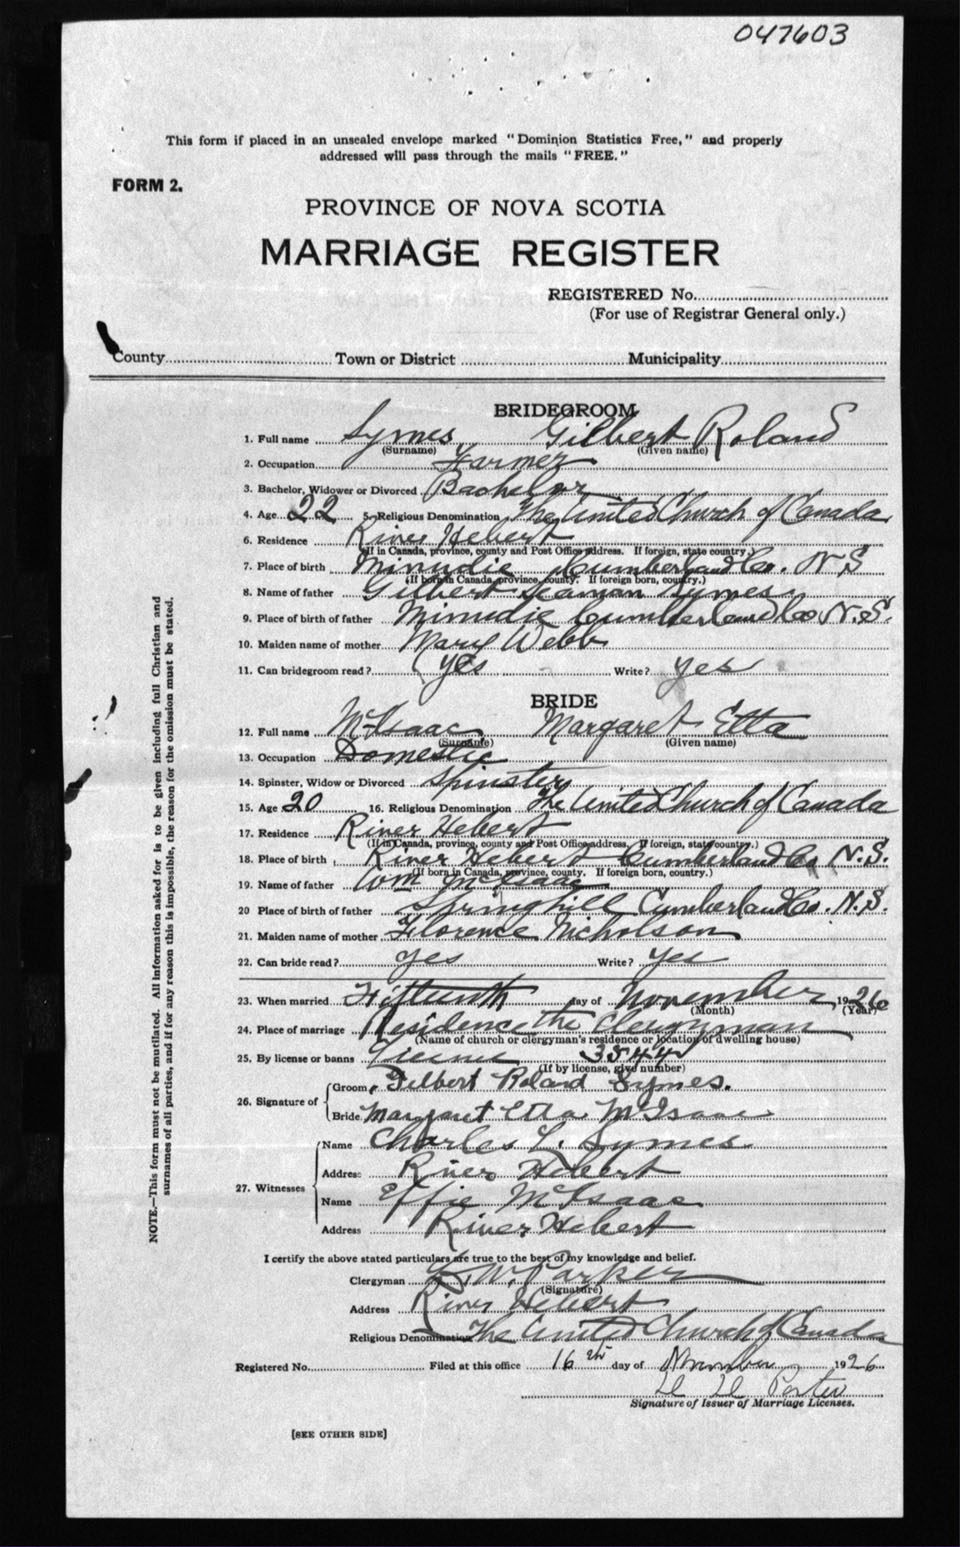 047603
This form if placed in an unsealed envelope marked "Dominion Statistics Free," and properly
addressed will pass through the mails "FREE."
FORM 2.
PROVINCE OF NOVA SCOTIA
MARRIAGE REGISTER
REGISTERED No.
(For use of Registrar General only.)
County Town or District Municipality
BRIDEGROOM
1. Full name Symes Gilbert Roland
(Surname) (Given name)
2. Occupation Farmer
3. Bachelor, Widower or Divorced Bachelor
4. Age 22 5. Religious Denomination The United Church of Canada
6. Residence River Hebert
(If in Canada, province, county and Post Office address. If foreign, state country.)
7. Place of birth Minudie Cumberland Co. N.S
(If born in Canada, province, county. If foreign born, country.)
8. Name of father Gilbert Seaman Symes
9. Place of birth of father Minudie Cumberland Co N.S.
10. Maiden name of mother Mary Webb
11. Can bridegroom read? Yes Write? Yes
BRIDE
12. Full name McIsaac, Margaret Etta
(Surname) (Given name)
13. Occupation Domestic
14. Spinster, Widow or Divorced Spinster
15. Age 20 16. Religious Denomination The United Church of Canada
17. Residence River Hebert
(If in Canada, province, county and Post Office address. If foreign, state country.)
18. Place of birth River Hebert Cumberland Co N.S.
(If born in Canada, province, county. If foreign born, country.)
19. Name of father Wm McIsaac
20 Place of birth of father Springhill Cumberland Co. N.S.
21. Maiden name of mother Florence Nicholson
22. Can bride read? Yes Write? Yes
23. When married Fifteenth day of November, 1926
(Month) (Year)
24. Place of marriage Residence the Clergyman
(Name of church or clergyman's residence or location of dwelling house)
25. By license or banns 3544
(If by license, give number)
26. Signature of Groom Gilbert Roland Symes.
Bride Margaret Etta McIsaac
27. Witnesses Name Charles L. Symes
Address River Hebert
Name Effie McIsaac
Address River Hebert
I certify the above stated particulars are true to the best of my knowledge and belief.
Clergyman W. Parker
(Signature)
Address River Hebert
Religious Denomination The United Church of Canada
Registered No. Filed at this office 16th day of November 1926
Porter
Signature of Issuer of Marriage Licenses.
[SEE OTHER SIDE]
NOTE.—This form must not be mutilated. All information asked for is to be given including full Christian and
surnames of all parties, and if for any reason this is impossible, the reason for the omission must be stated.